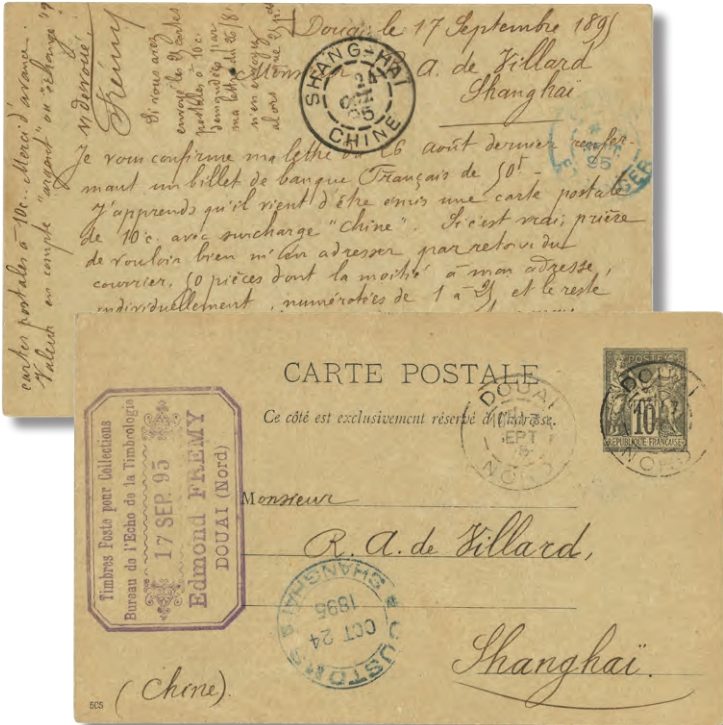 Douai, le 17 Septembre 1895
Monsieur R. A. de Villard
Shanghaï
SHANG-HAI
24
95
CHINE
Je vous confirme ma lettre du 26 août dernier renfer-
mant un billet de banque Français de 50f -
J'apprends qu'il vient d'être émis une carte postale
de 10 c. avec surcharge "Chine". Si c'est vrai, prière
de vouloir bien m'en adresser par retour du
courrier, 50 pièces dont la moitié à mon adresse,
individuellement, numérotées de 1 à 25 et le reste
Si vous avez
envoyé les cartes
postales à 10c.
demandées par
ma lettre du 26/8
n'en envoyez
alors que
dévoué.
Frémy
cartes postales à 10c. Merci d'avance.
Valeur en compte "argent" ou "échange"
CARTE POSTALE
Ce côté est exclusivement réservé à l'adresse.
POSTES
10
REPUBLIQUE FRANÇAISE
DOUAI
SEPT
NORD
DOUAI
NORD
Timbres Poste pour Collections
Bureau de l'Echo de la Timbrologie
17 SEP. 95
Edmond FREMY
DOUAI (Nord)
Monsieur
R. A. de Villard,
Shanghaï.
(Chine).
CUSTOMS
SHANGHAI
OCT 24
1895
505